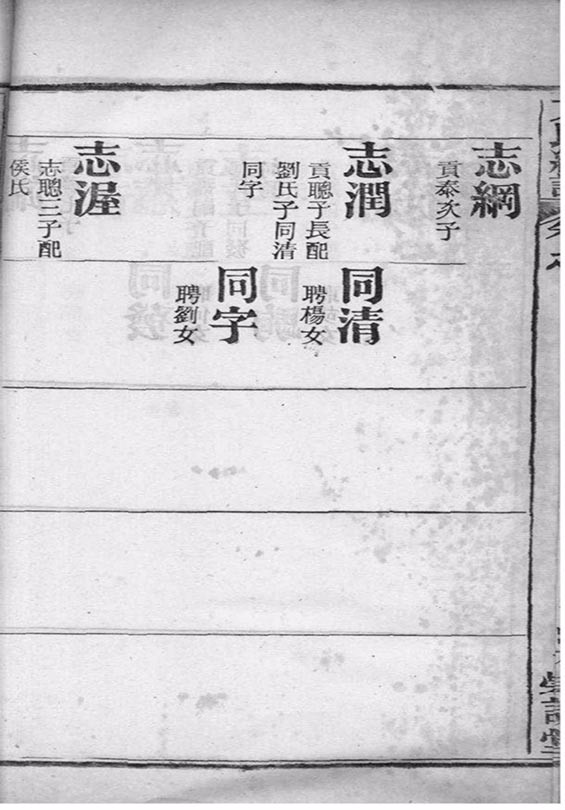 志綱
貢泰次子
志潤
貢聰子長配
劉氏子同清
同字
同清
聘楊女
同字
聘劉女
志渥
志聰三子配
侯氏